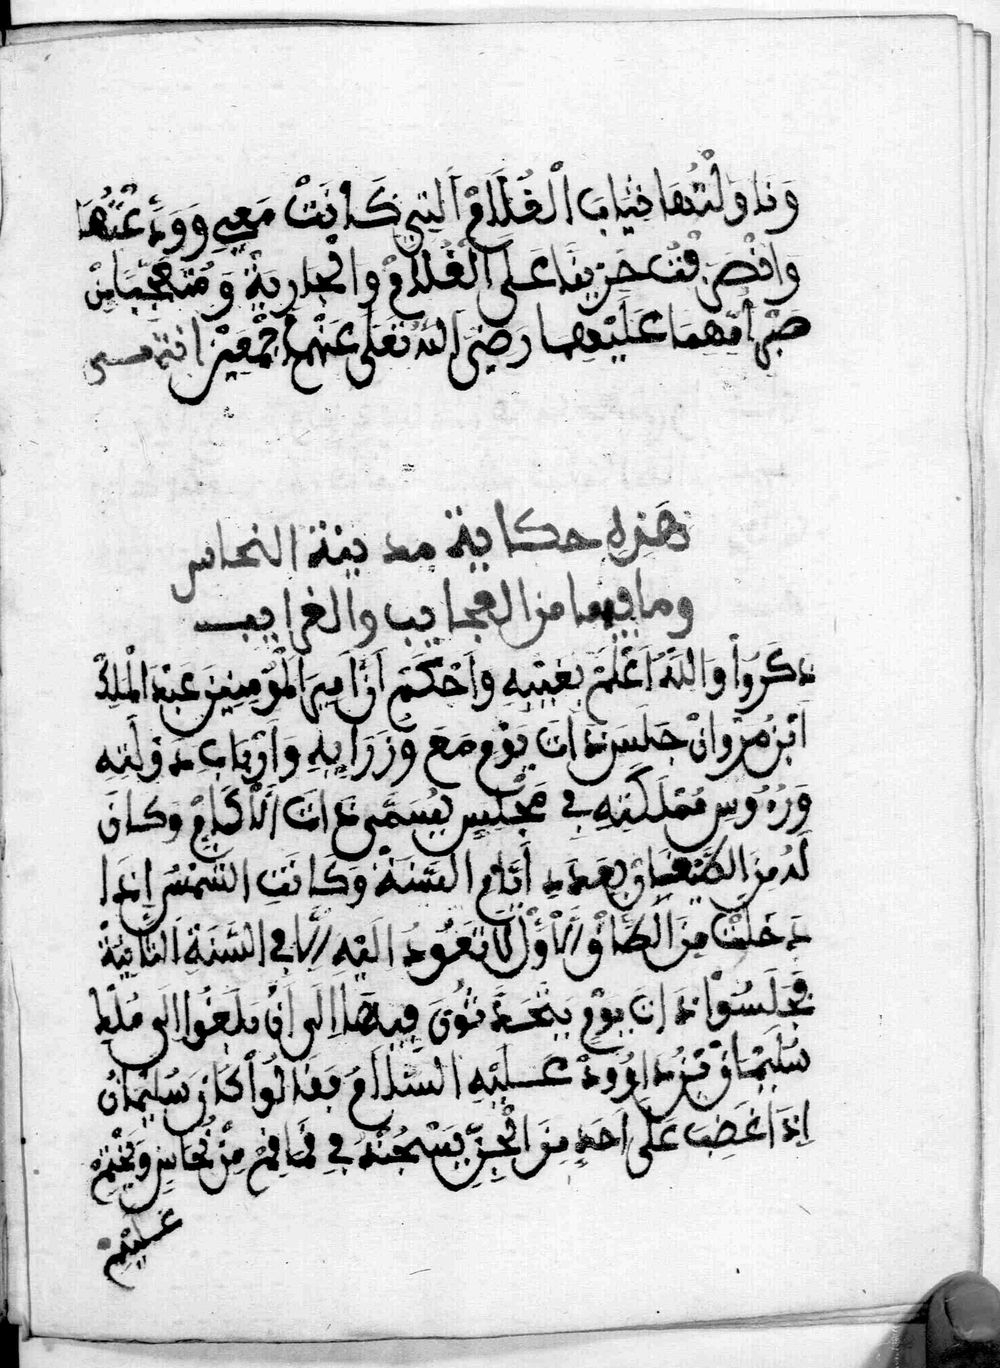 وَنَاوَلْتُهَا ثِيَابَ الْغُلَامْ اَلتِي كَانَتْ مَعِي وَوَدَّعْتُهَا
وَانْصَرَفْتُ حَزِينًا عَلَى الْغُلَامْ وَالْجَارِيَةْ وَمُتَعَجِّبًا مِنْ
صَبْرِ أُمِّهِمَا عَلَيْهِمَا رَضِيَ اللَّهُ تَعَلَى عَنْهُمْ أَجْمَعِينَ انتهى
هَذِهِ حكاية مدينة النحاس
وما فيها من العجايب والغرايب
ذَكَرُوا وَاللَّهُ اَعْلَمْ بِغَيْبِهِ وَاَحْكَمْ اَنَّ اَمِيرَ الْمُؤْمِنِينَ عَبْدَ الْمَلِكْ
اَبْنُ مَرْوَانْ جَلَسَ ذَاتَ يَوْمٍ مَعَ وُزَرَايِهِ وَاَرْبَابِ دَوْلَتِهِ
وَرُءُوسِ مَمْلَكَتِهِ فِي مَجْلِسٍ يُسَمَّى ذَاتَ الْأَكْمَامْ وَكَانَ
لَهُ مِنَ الطِّيقَانِ بِعَدَدِ أَيَّامِ السَّنَةْ وَكَانَتِ الشَّمْسُ إِذَا
دَخَلَتْ مِنَ الطَّاقْ الْأَوَّلْ لَا تَعُودُ الَيْهِ إِلَّا فِي السَّنَةِ الثَّانِيَةْ
فَجَلَسُوا ذَاتَ يَوْمٍ يَتَحَدَّثُونَ فِيهَا اِلَى اَنْ بَلَغُوا الَى مُلْكِ
سُلَيْمَانْ بْنُ دَاوُودْ عَلَيْهِ السَّلَامْ فَقَالُوا كَانَ سُلَيْمَانْ
اِذَا غَضِبَ عَلَى اَحَدٍ مِنَ الْجِنِّ يَسْجُنُهُ فِي قَمَاقِمْ مِنْ نُحَاسٍ وَيَخْتِمْ
عَلَيْهِمْ